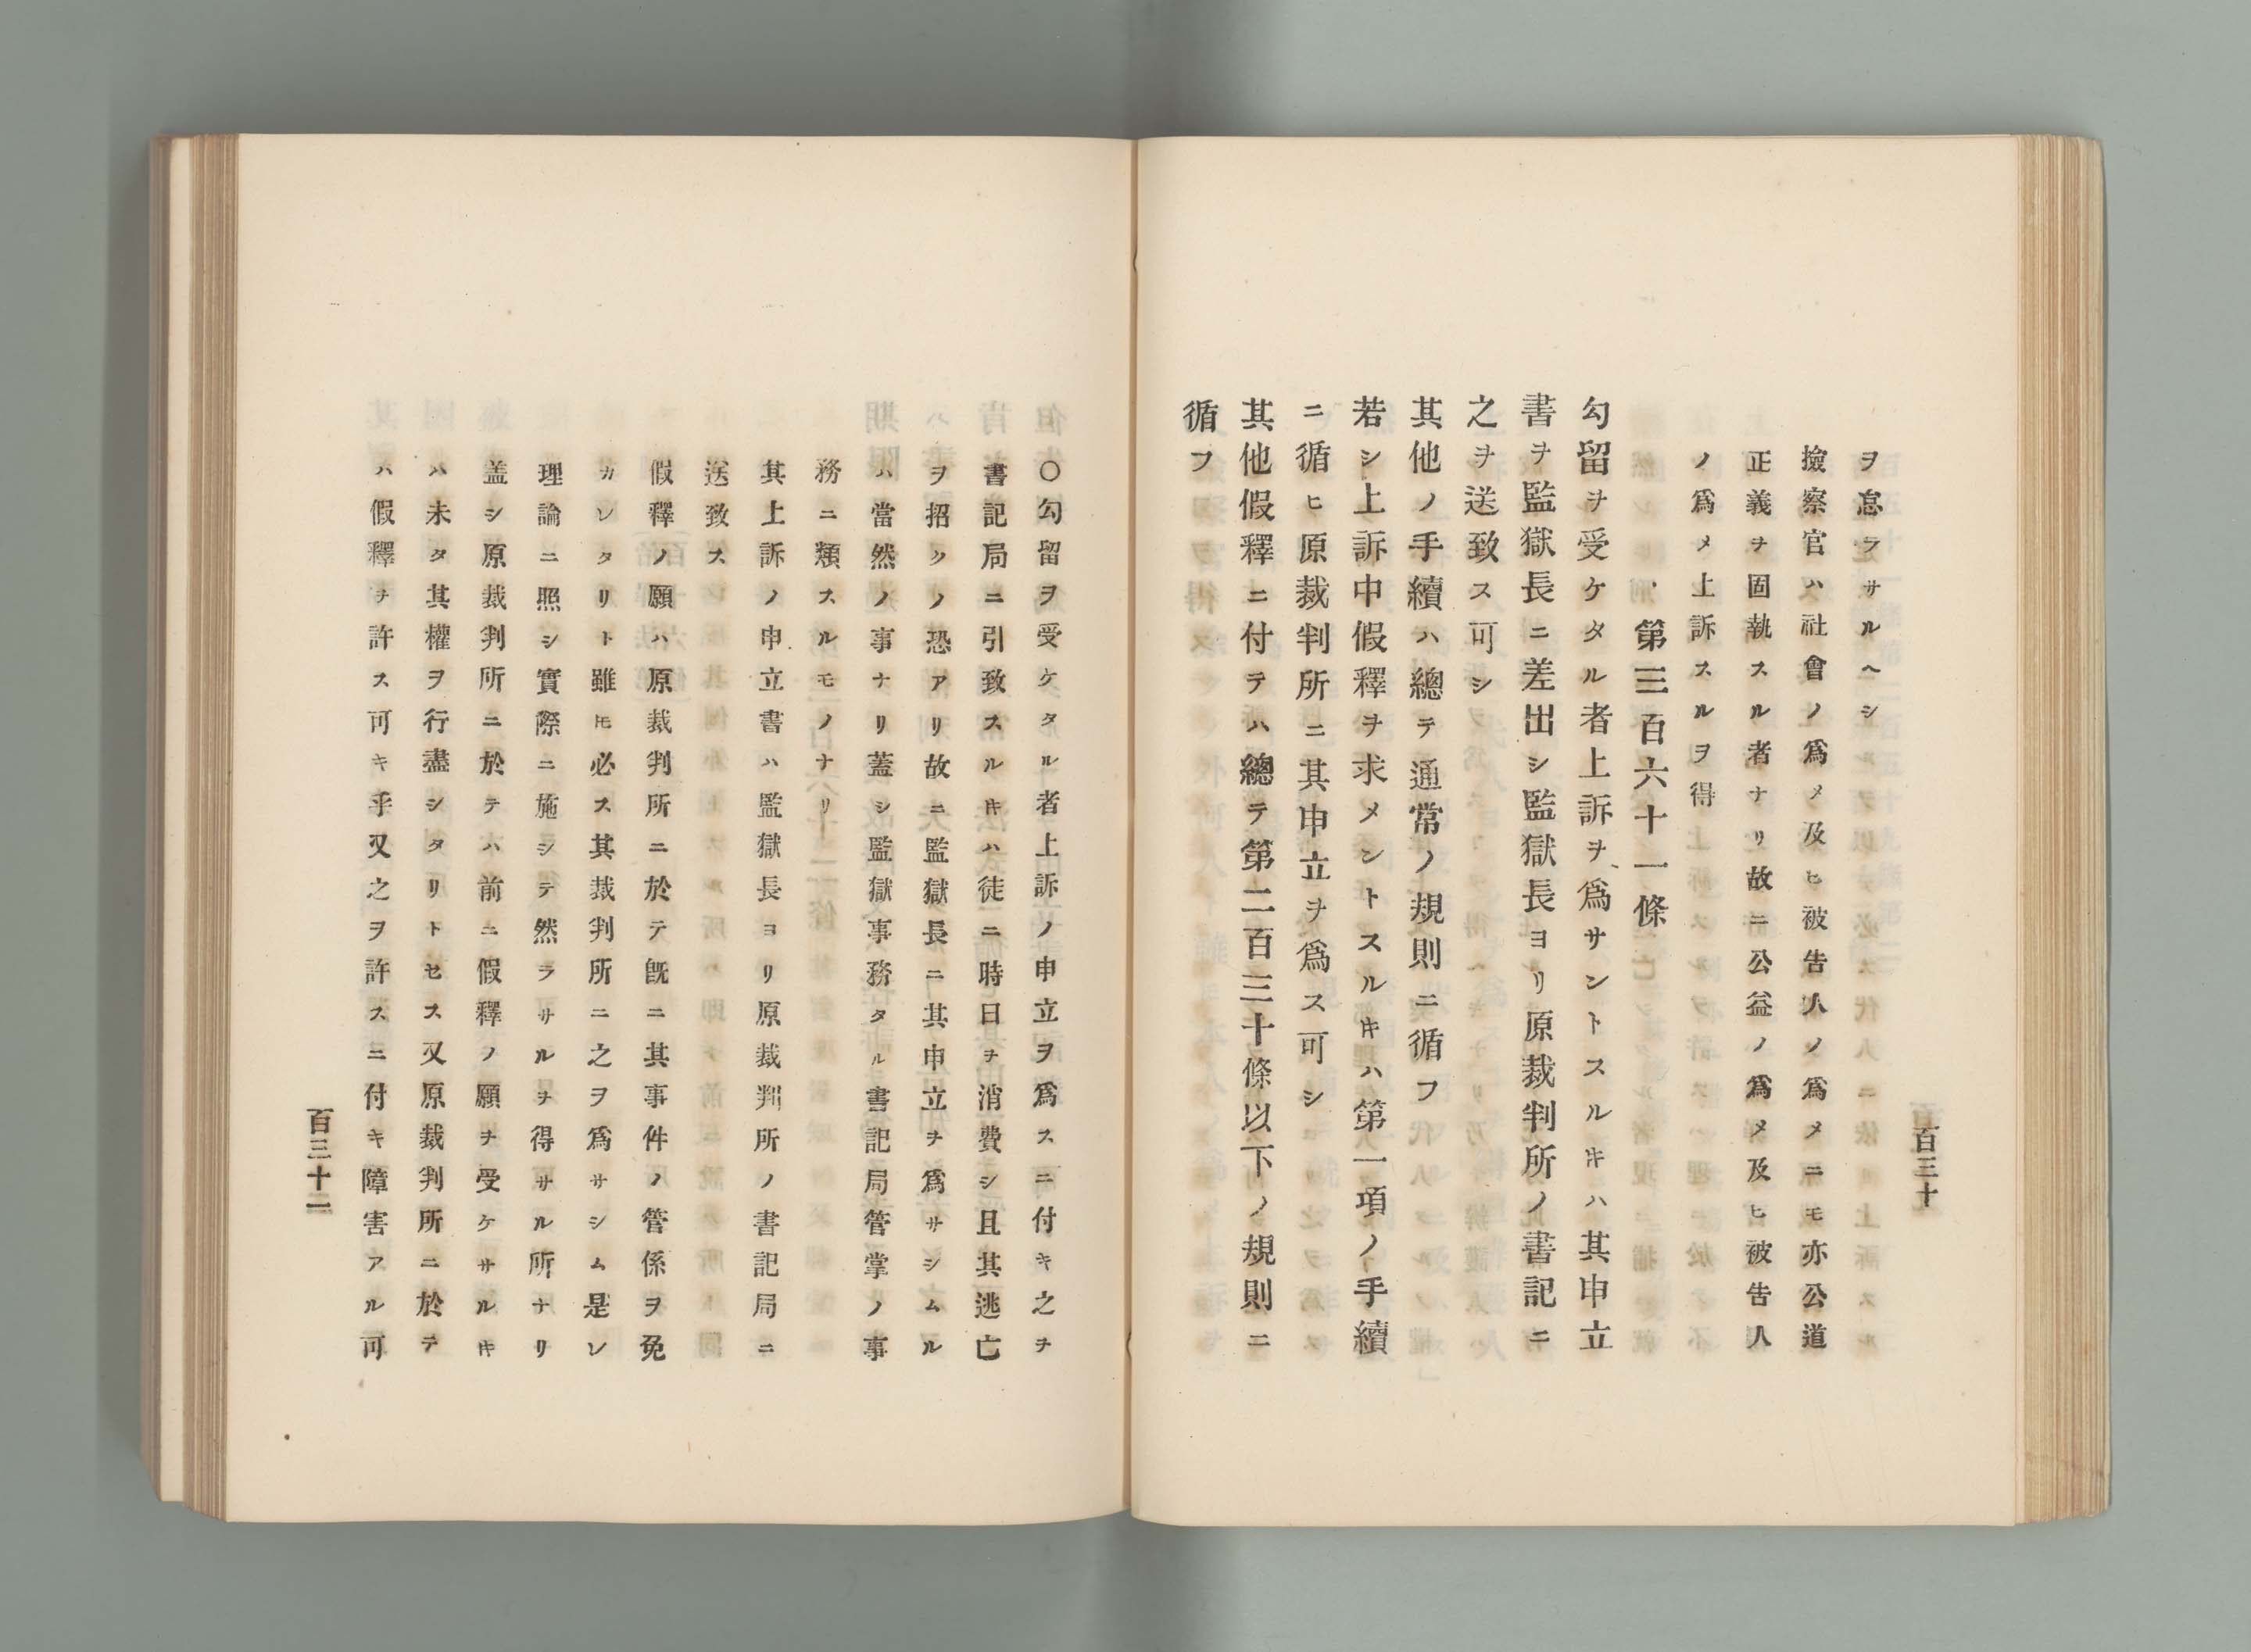 ヲ怠ラサルヘシ
撿察官ハ社會ノ爲メ及ヒ被告人ノ爲メニモ亦公道
正義ヲ固執スル者ナリ故ニ公益ノ爲メ及ヒ被告人
ノ爲メ上訴スルヲ得
第三百六十一條
勾留ヲ受ケタル者上訴ヲ爲サントスルキハ其申立
書ヲ監獄長ニ差出シ監獄長ヨリ原裁判所ノ書記ニ
之ヲ送致ス可シ
其他ノ手續ハ總テ通常ノ規則ニ循フ
若シ上訴中假釋ヲ求メントスルキハ第一項ノ手續
ニ循ヒ原裁判所ニ其申立ヲ爲ス可シ
其他假釋ニ付テハ總テ第二百三十條以下ノ規則ニ
循フ
百三十
○勾留ヲ受ケタル者上訴ノ申立ヲ爲スニ付キ之ヲ
書記局ニ引致スルキハ徒ニ時日ヲ消費シ且其逃亡
ヲ招クノ恐アリ故ニ監獄長ニ其申立ヲ爲サシムル
ハ當然ノ事ナリ蓋シ監獄事務タル書記局管掌ノ事
務ニ類スルモノナリ
其上訴ノ申立書ハ監獄長ヨリ原裁判所ノ書記局ニ
送致ス
假釋ノ願ハ原裁判所ニ於テ既ニ其事件ノ管係ヲ免
カレタリト雖ㇳモ必ス其裁判所ニ之ヲ爲サシム是レ
理論ニ照シ實際ニ施シテ然ラサルヲ得サル所ナリ
盖シ原裁判所ニ於テハ前ニ假釋ノ願ヲ受ケサルキ
ハ未タ其權ヲ行盡シタリトセス又原裁判所ニ於テ
ハ假釋ヲ許ス可キ乎又之ヲ許スニ付キ障害アル可
百三十一